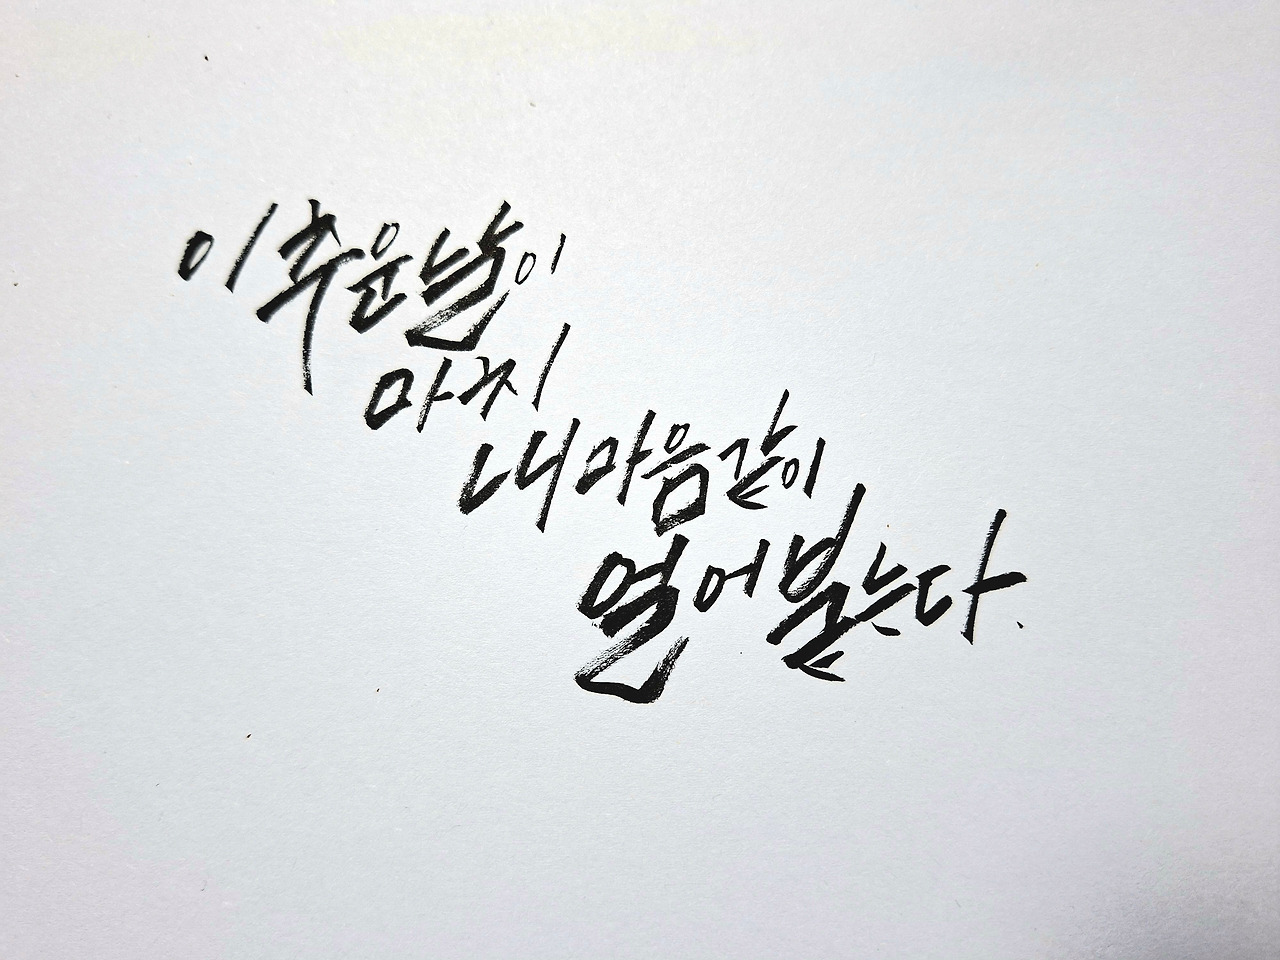 이 추운 날이
마치
내 마음 같이
얼어붙는다.